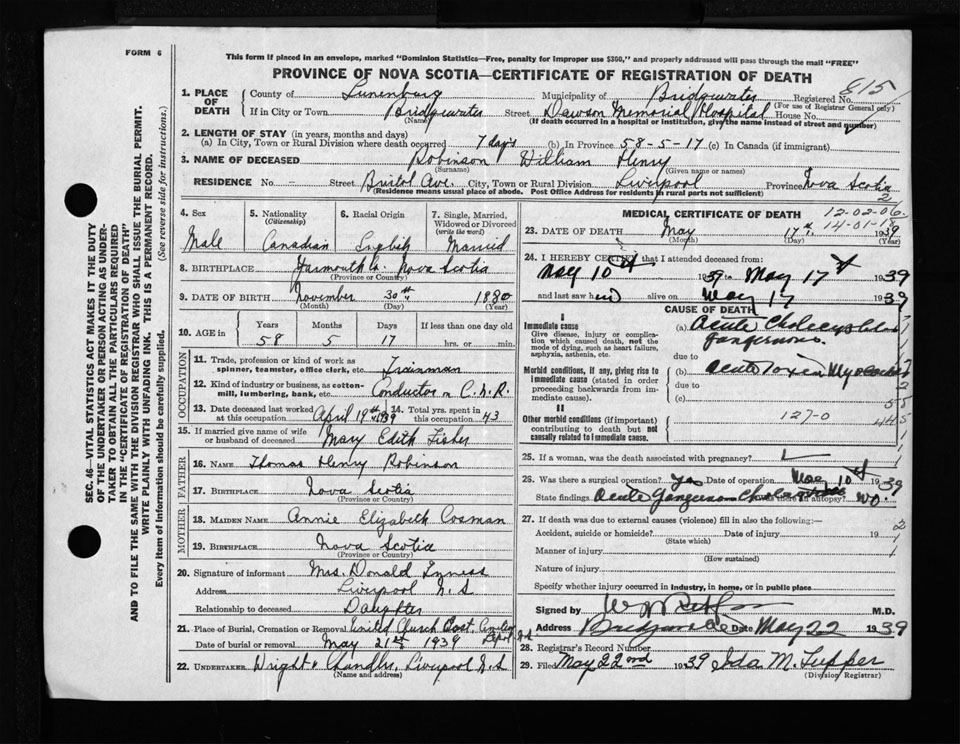 FORM 6
This form if placed in an envelope, marked "Dominion Statistics—Free, penalty for improper use $300," and properly addressed will pass through the mail "FREE"
PROVINCE OF NOVA SCOTIA—CERTIFICATE OF REGISTRATION OF DEATH
SEC. 46—VITAL STATISTICS ACT MAKES IT THE DUTY
OF THE UNDERTAKER OR PERSON ACTING AS UNDER-
TAKER TO OBTAIN ALL THE PARTICULARS REQUIRED
IN THE "CERTIFICATE OF REGISTRATION OF DEATH"
AND TO FILE THE SAME WITH THE DIVISION REGISTRAR WHO SHALL ISSUE THE BURIAL PERMIT.
WRITE PLAINLY WITH UNFADING INK. THIS IS A PERMANENT RECORD.
Every item of information should be carefully supplied. (See reverse side for instructions.)
1. PLACE OF DEATH
County of Lunenburg Municipality of Bridgewater Registered No. 615
(For use of Registrar General only)
If in City or Town Bridgewater Street Dawson Memorial Hospital House No.
(Name) (If death occurred in a hospital or institution, give the name instead of street and number)
2. LENGTH OF STAY (in years, months and days)
(a) In City, Town or Rural Division where death occurred 7 days (b) In Province 58-5-17 (c) In Canada (if immigrant)
3. NAME OF DECEASED Robinson William Henry
(Surname) (Given name or names)
RESIDENCE No. — Street Bristol Ave. City, Town or Rural Division Liverpool Province Nova Scotia
(Residence means usual place of abode. Post Office Address for residents in rural parts not sufficient)
4. Sex
Male
5. Nationality
(Citizenship)
Canadian
6. Racial Origin
English
7. Single, Married, Widowed or Divorced
(write the word)
Married
8. BIRTHPLACE Yarmouth Co. Nova Scotia
(Province or Country)
9. DATE OF BIRTH November 30th 1880
(Month) (Day) (Year)
10. AGE in
Years Months Days If less than one day old
58 5 17 hrs. or min.
OCCUPATION
11. Trade, profession or kind of work as
spinner, teamster, office clerk, etc. Trainman
12. Kind of industry or business, as cotton-
mill, lumbering, bank, etc. Conductor on C.N.R.
13. Date deceased last worked at this occupation April 19th 1939
14. Total yrs. spent in this occupation 43
15. If married give name of wife
or husband of deceased Mary Edith Fisher
FATHER
16. NAME Thomas Henry Robinson
17. BIRTHPLACE Nova Scotia
(Province or Country)
MOTHER
18. MAIDEN NAME Annie Elizabeth Cosman
19. BIRTHPLACE Nova Scotia
(Province or Country)
20. Signature of informant Mrs. Donald
Address Liverpool N.S
Relationship to deceased Daughter
21. Place of Burial, Cremation or Removal United Church
Date of burial or removal May 21st 1939
22. UNDERTAKER Wright & Chandler, Liverpool N.S
(Name and address)
MEDICAL CERTIFICATE OF DEATH
2
12-02-06
14-01-
23. DATE OF DEATH May 17th 1939
(Month) (Day) (Year)
24. I HEREBY CERTIFY that I attended deceased from:
May 10th 1939 to May 17th 1939
and last saw him alive on May 17 1939
CAUSE OF DEATH
I
Immediate cause
Give disease, injury or complication which caused death, not the mode of dying, such as heart failure, asphyxia, asthenia, etc.
(a) Acute
Gangrenous.
due to
Morbid conditions, if any, giving rise to immediate cause (stated in order proceeding backwards from immediate cause).
(b) Acute Toxic
due to
(c)
II
Other morbid conditions (if important) contributing to death but not causally related to immediate cause.
127-0
25. If a woman, was the death associated with pregnancy?
26. Was there a surgical operation? Yes Date of operation May 10th 1939
State findings Acute Was there an autopsy? No.
27. If death was due to external causes (violence) fill in also the following:—
Accident, suicide or homicide? Date of injury 19
(State which)
Manner of injury
(How sustained)
Nature of injury
Specify whether injury occurred in industry, in home, or in public place
Signed by M.D.
Address Bridgewater Date May 22 1939
28. Registrar's Record Number
29. Filed May 22nd 1939 Ida M. Tupper
(Division Registrar)